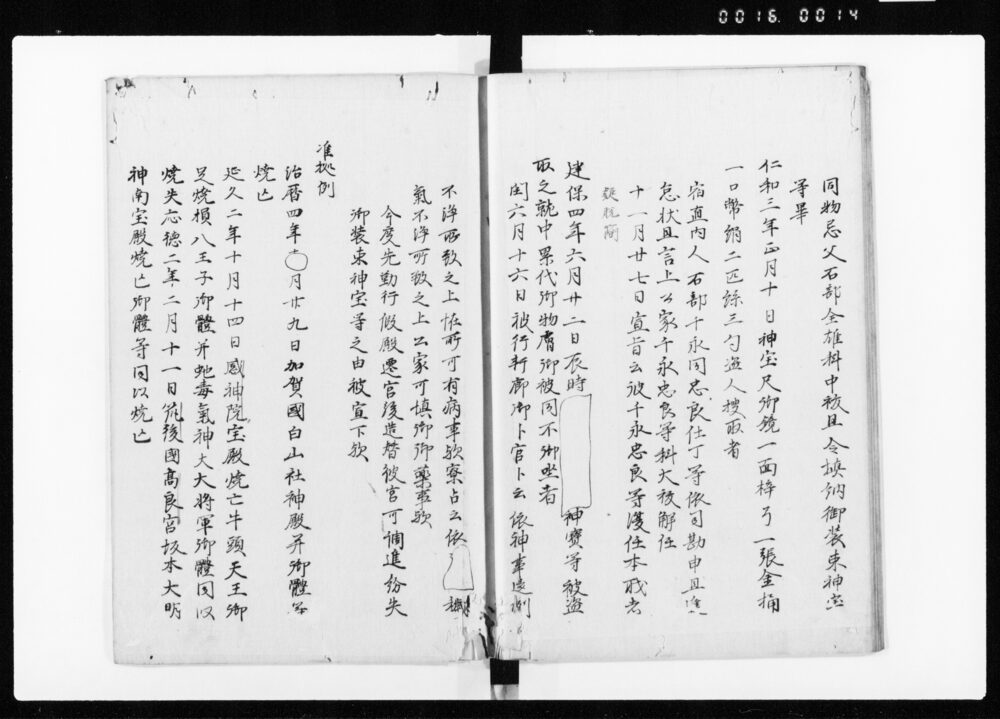 0016 0014
同物忌父石部全雄科中祓且令填納御装束神宝
等畢
仁和三年正月十日神宝尺御鏡一面梓弓一張金桶
一口幣絹二匹餘三勺盗人捜取者
宿直内人石部千永同忠良仕丁等依司勘申且進
怠状且言上公家千永忠良等科大祓解任
十一月廿七日宣旨云彼千永忠良等復任本職者
建保四年六月廿二日辰時 神寳等被盗
取之就中累代御物膚御被同不御坐者
閏六月十六日被行軒廊御卜官卜云依神事違例
不浄所致之上恠所可有病事歟寮占云依
氣不浄所致之上公家可慎御御藥事歟
今度先勤行假殿遷宮後造替被宮可調進紛失
御装束神宝等之由被宣下歟
准拠例
治暦四年 月廿九日加賀國白山社神殿并御體等
焼亡
延久二年十月十四日感神院宝殿焼亡牛頭天王御
足焼損八王子御體并虵毒氣神大大将軍御體同以
焼失応徳二年二月十一日筑後國高良宮坂本大明
神南宝殿焼亡御體等同以焼亡